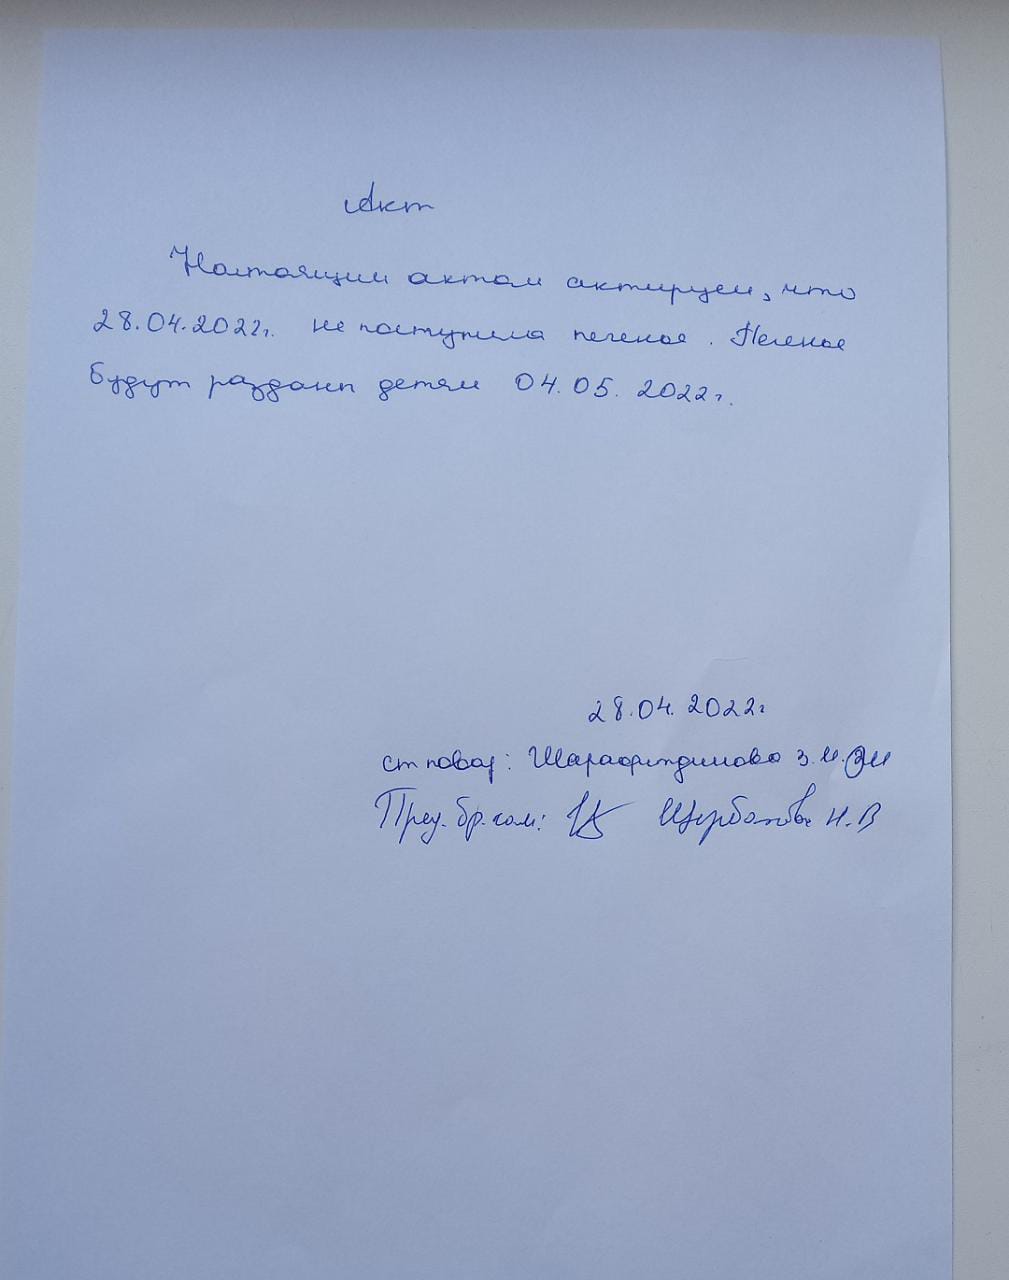 Акт
Настоящим актом актируем, что
28.04.2022г. не поступила печенье. Печенье
будут раздани детям 04.05.2022г.
28.04.2022г
ст повар: Шарафитдинова З.М.
Пред. бр. ком: Щербакова Н.В